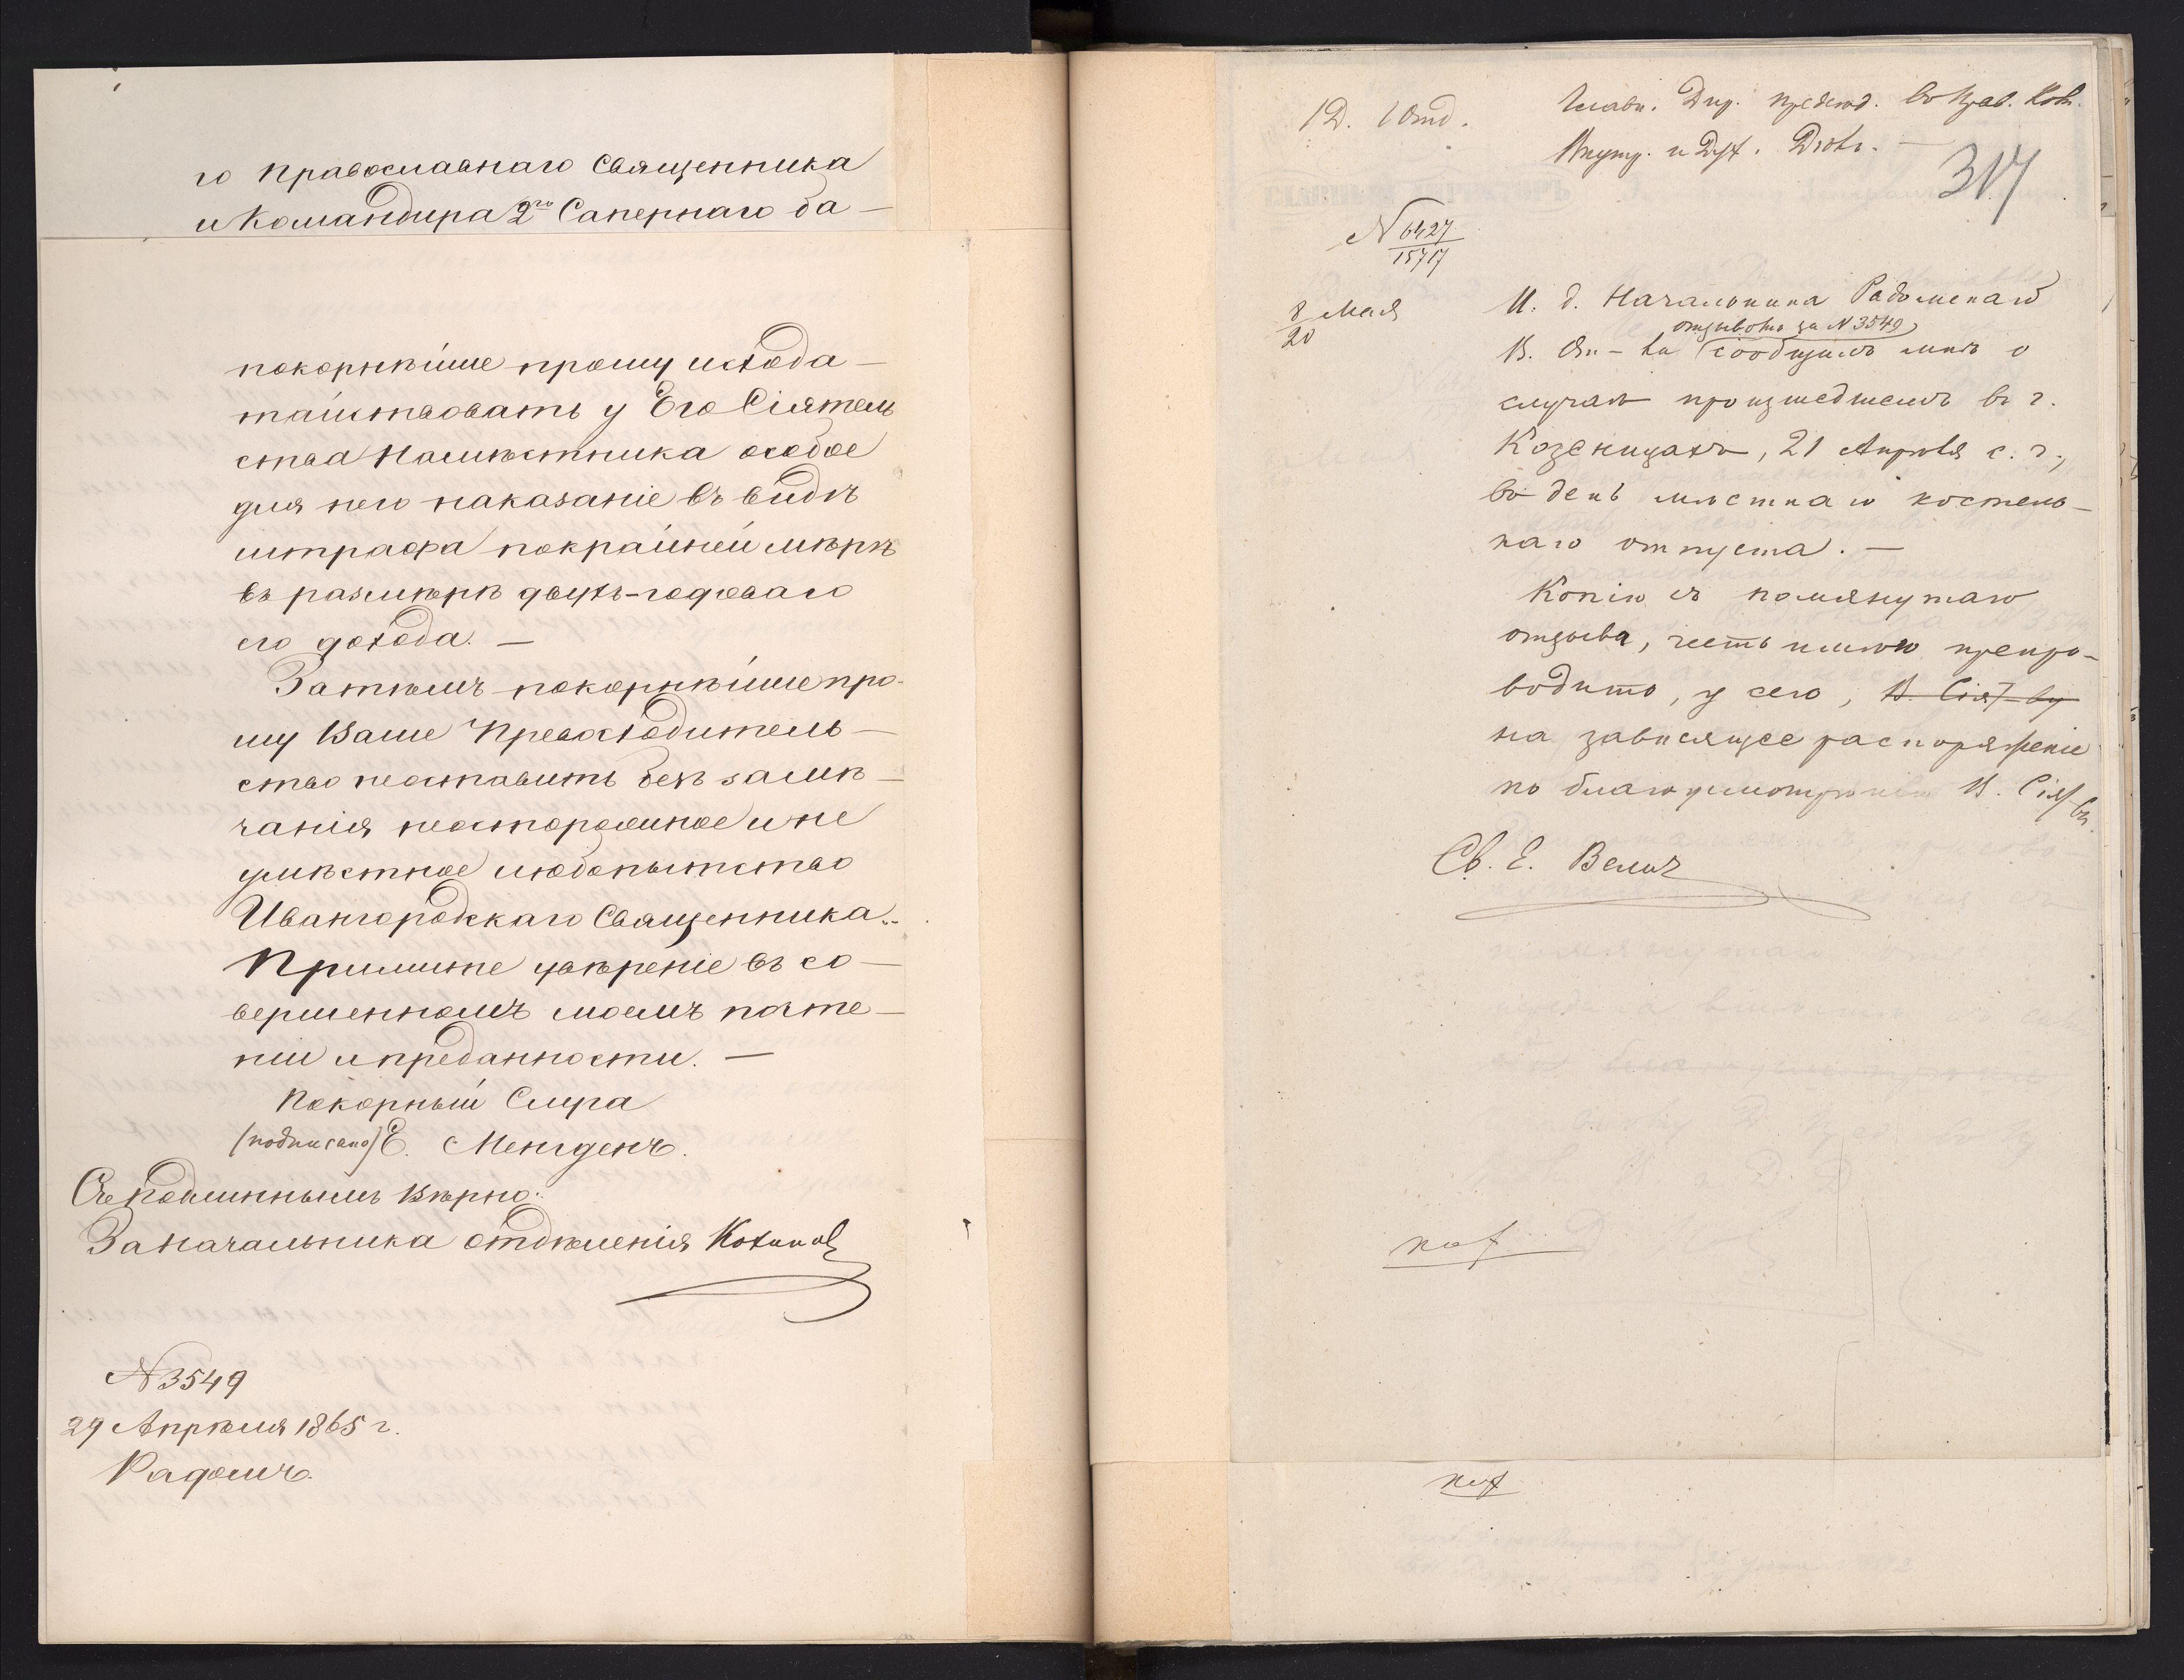 го Православнаго Священника
и Командира 2го Сапернаго ба-
покорнѣйше прошу исхода-
тайствовать у Его Сіятель
ства Намѣстника особое
для него наказаніе въ видѣ
штрафа покрайней мѣрѣ
въ размѣрѣ двухъ-годоваго
его дохода. —
Затѣмъ покорнѣйше про-
шу Ваше Превосходитель-
ство неоставить безъ замѣ-
чанія неосторожное и не
умѣстное любопытство
Ивангородскаго Священника.
Примите увѣреніе въ со-
вершенномъ моемъ почте-
ніи и преданности. —
Покорный Слуга
(подписано) Е. Менгденъ.
Съ подлиннымъ вѣрно:
За Начальника отдѣленія
N 3549
29 Апрѣля 1865 г.
Радомъ.
1 Д. 1 Отд.
Главн. Дир. предсѣд. въ Прав. Ком.
Внутр. и Дух. Дѣлъ. —
317
N 6427
15717
8 Мая
20
И. д. Начальника Радомскаго
отзывомъ за N 3549
В. От-ла сообщилъ мнѣ о
случаѣ произшедшемъ въ г.
Козеницахъ, 21 Апрѣля с. г.,
въ день мѣстнаго костель-
наго отпуста. —
Копію съ помянутаго
отзыва, честь имѣю препро-
водить, у сего, В. Сія-ву
на зависящее распоряженіе
по благоусмотрѣнію В. Сія-ва.
Св. Е. Велич